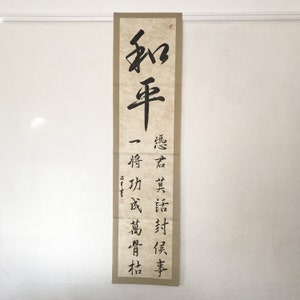 和平
憑君莫話封侯事
一将功成萬骨枯